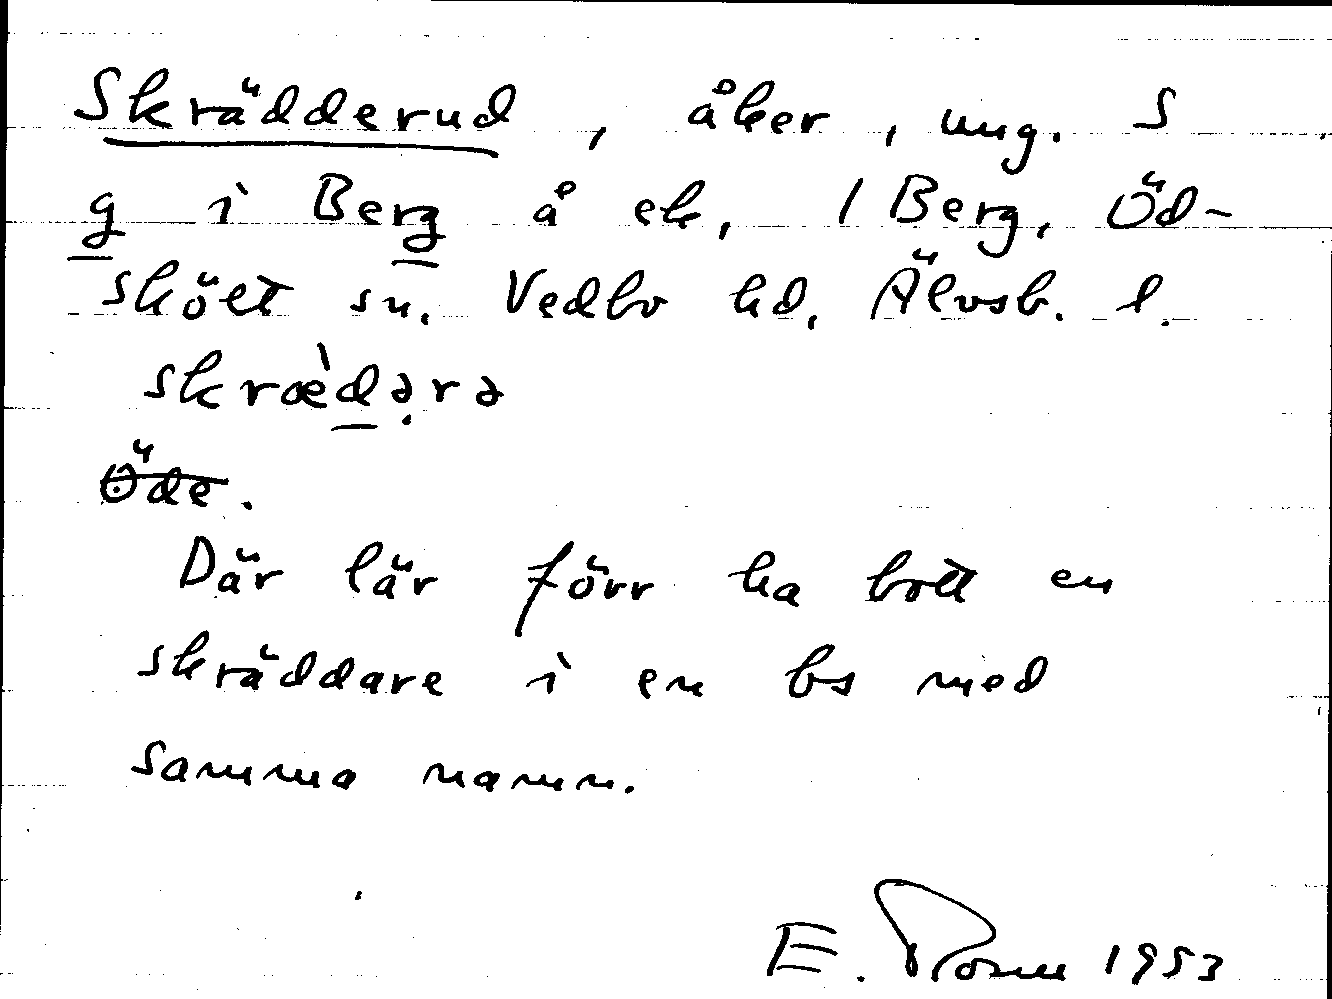 Skrädderud, åker, ung. S
g i Berg å ek, 1 Berg, Öd-
skölt sn. Vedbo hd, Älvsb. l.
skræ̀dạrə
Öde.
Där lär förr ha bott en
skräddare i en bs med
samma namn.
E. 1953